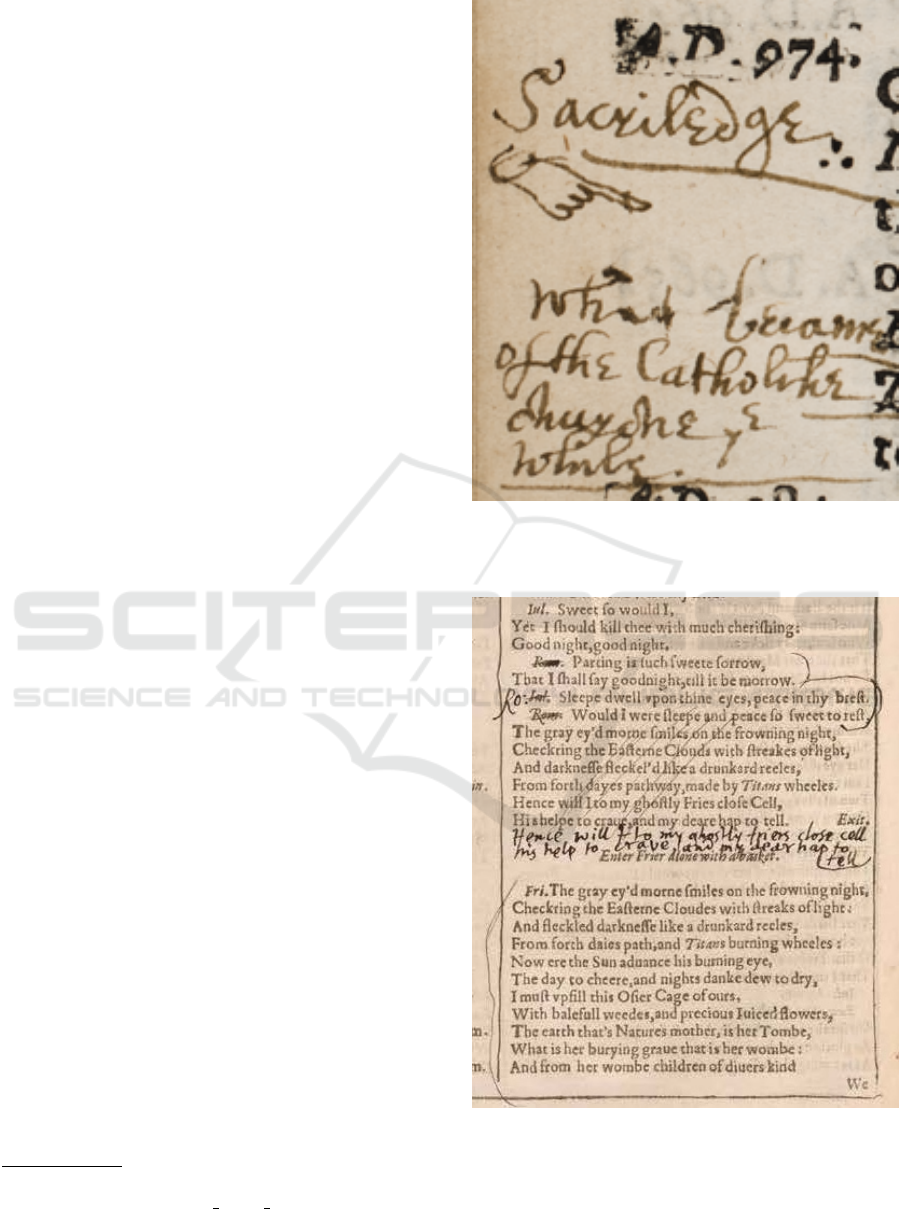 A.D. 974.
Sacriledge
what became
of the Catholike
churche ye
while.
SCITEPRESS
SCIENCE AND TECHNOLOGY
Iul. Sweet ſo would I,
Yet I ſhould kill thee with much cheriſhing:
Good night,good night.
Rom. Parting is ſuch ſweete ſorrow,
That I ſhall ſay goodnight,till it be morrow.
Ro: Iul. Sleepe dwell vpon thine eyes, peace in thy breſt.
Rom. Would I were ſleepe and peace ſo ſweet to reſt,
The gray ey'd morne ſmiles on the frowning night,
Checkring the Eaſterne Clouds with ſtreakes of light,
And darkneſſe fleckel'd like a drunkard reeles,
From forth dayes pathway,made by Titans wheeles.
in.
Hence will I to my ghoſtly Fries cloſe Cell,
His helpe to craue,and my deare hap to tell. Exit.
Hence will I to my ghostly friers close cell
his help to crave, and my dear hap to
tell
Enter Frier alone with a basket.
Fri.The gray ey'd morne ſmiles on the frowning night,
Checkring the Eaſterne Cloudes with ſtreaks of light:
And fleckled darkneſſe like a drunkard reeles,
From forth daies path,and Titans burning wheeles:
Now ere the Sun aduance his burning eye,
The day to cheere,and nights danke dew to dry,
I muſt vpfill this Oſier Cage of ours,
With balefull weedes,and precious Iuiced flowers,
The earth that's Natures mother, is her Tombe,
m.
What is her burying graue that is her wombe:
And from her wombe children of diuers kind
m.
We